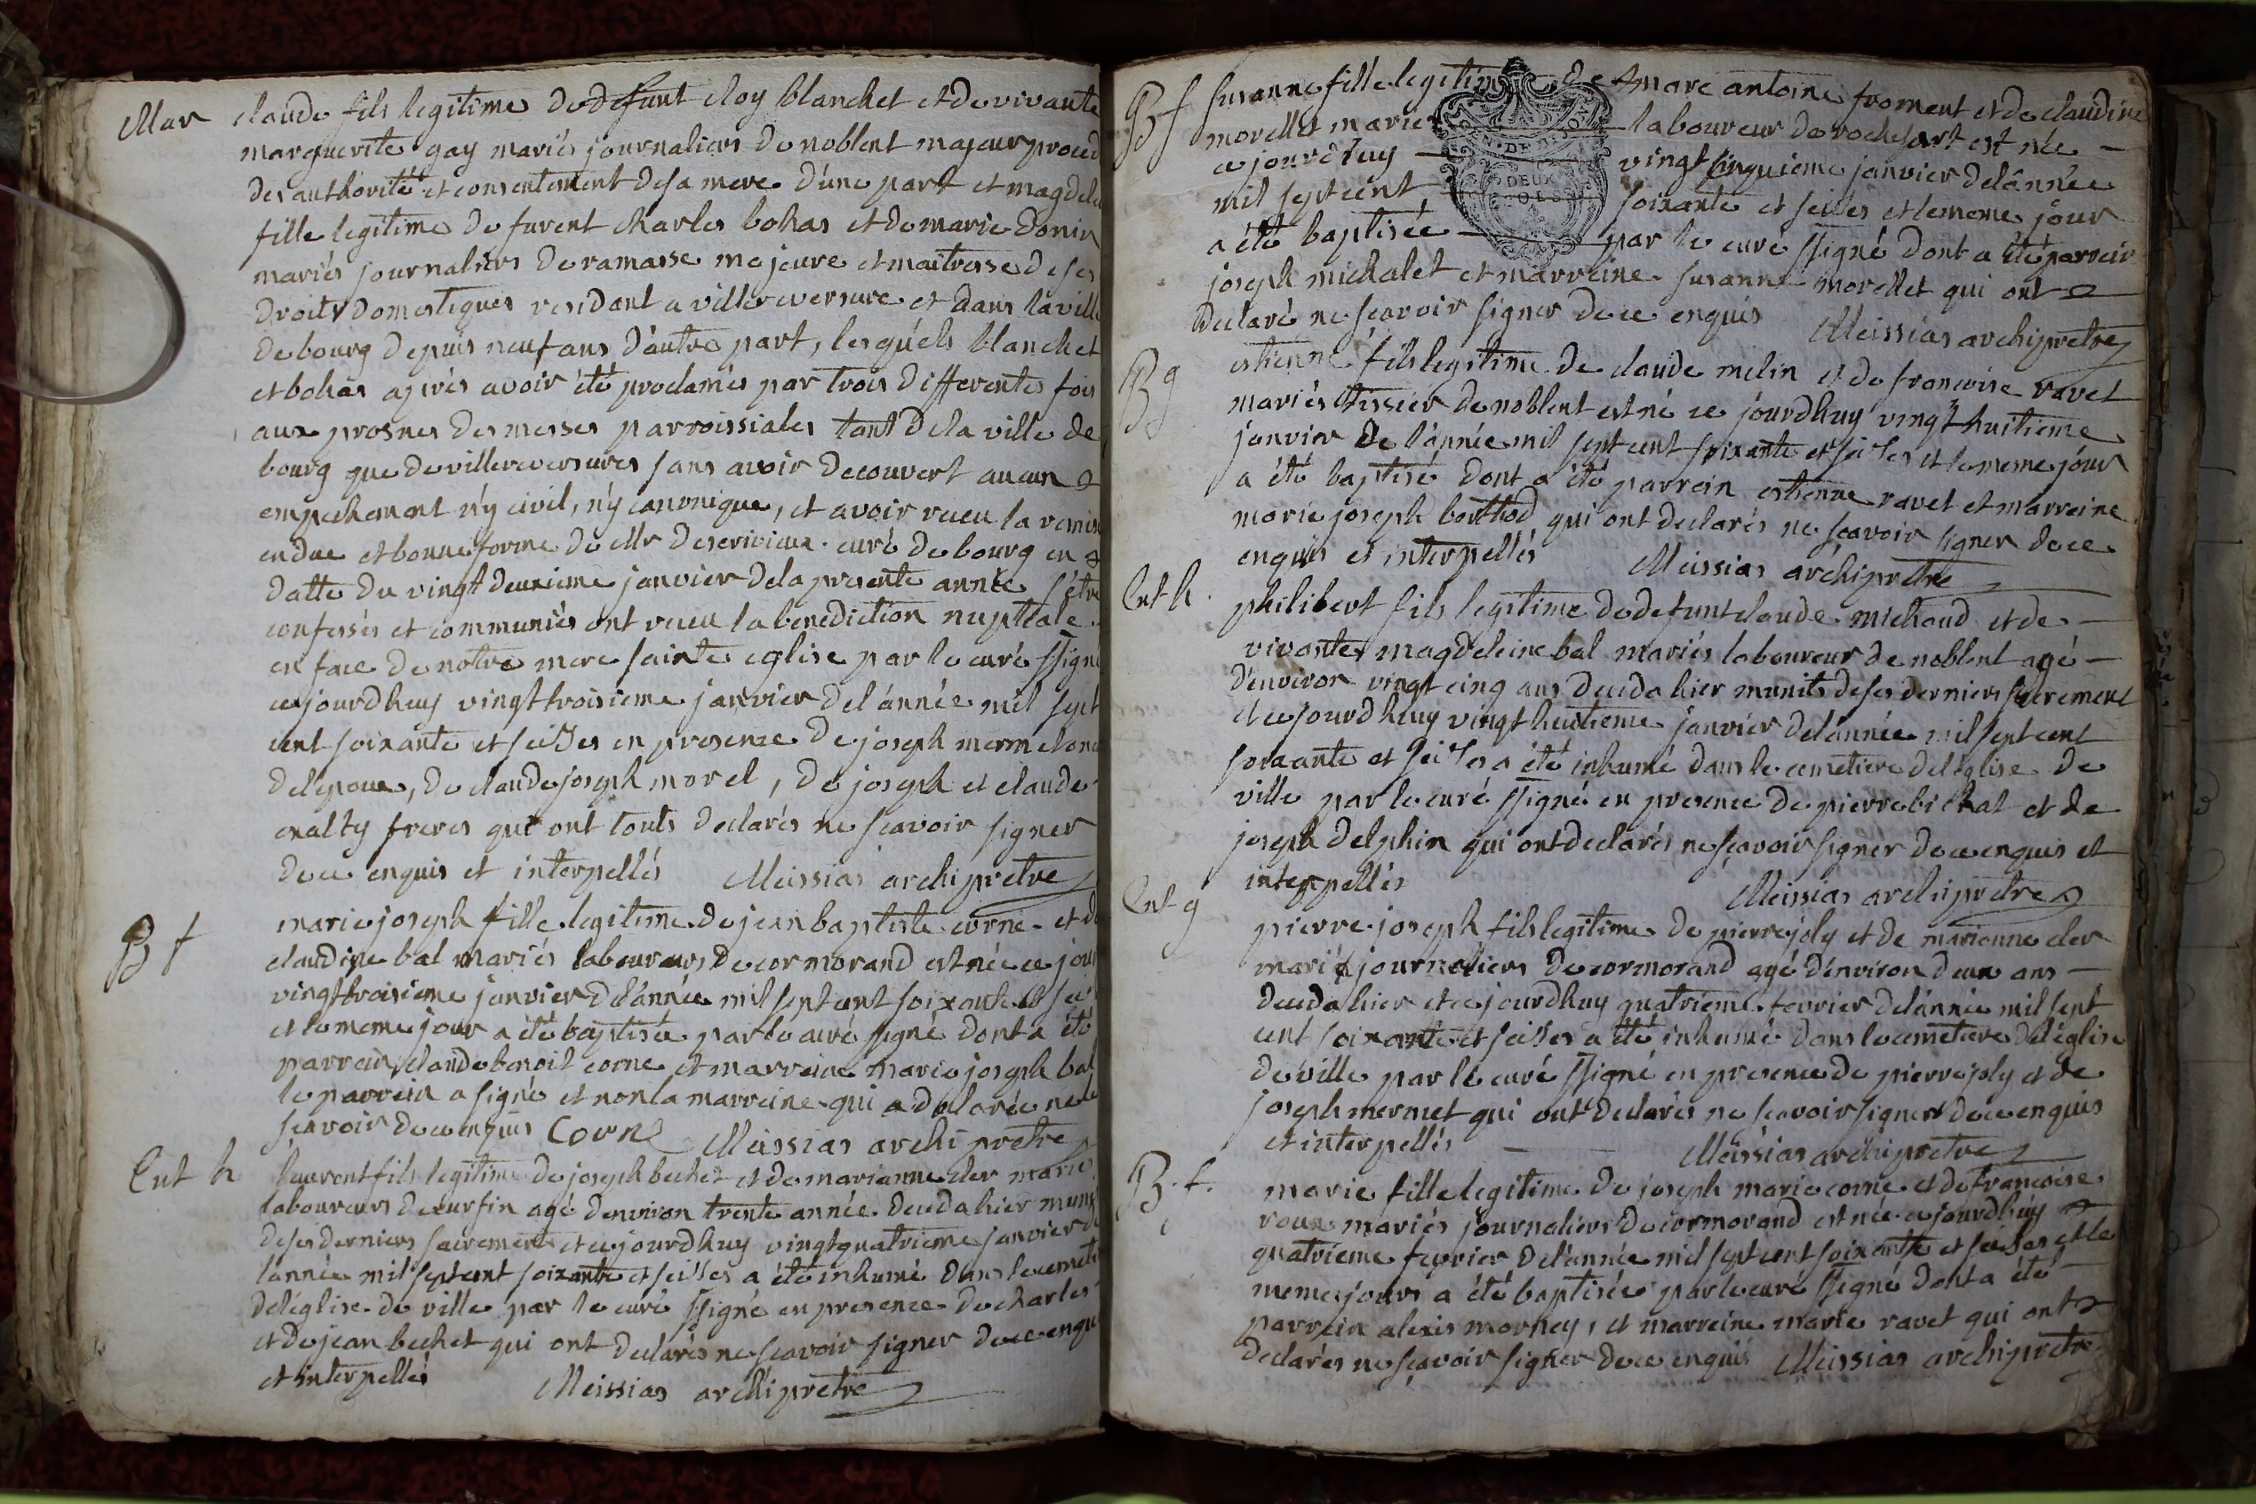 Mar claude fils legitime de defunt eloy blanchet et de vivante
marguerite gay mariés journaliers de noblent majeur proced
des authorité et consentement de sa mere d'une part et magdel
fille legitime de furent charles bohas et de marie donin
mariés journaliers de ramasse majeure et maitresse de ses
droits domestiques residant a villereversure et dans la ville
de bourg depuis neuf ans d'autre part, lesquéls blanchet
et bohas aprés avoir été proclamés par trois differentes fois
aux prosnes des messes parroissiales tant de la ville de
bourg que de villereversures sans avoir decouvert aucun
empechement n'y civil, n'y canonique, et avoir receu la remise
en due et bonne forme de Mr descrivieux curé de bourg en
datte du vingt deuxieme janvier de la presente année s'étre
confessés et communiés ont receu la benediction nuptiale
en face de notre mere sainte eglise par le curé ssigné
ce jourdhuy vingt troisieme janvier de l'année mil sept
cent soixante et seizes en presence de joseph mermet
de claude joseph morel, de joseph et claude
freres qui ont touts declarés ne scavoir signer
de ce enquis et interpellés Meissias archiprêtre
B f marie joseph fille legitime de jean baptiste corne et de
claudine bal mariés laboureurs de cormorand est née ce jour
vingt troisieme janvier de l'année mil sept cent soixante et sei
et le meme jour a été baptisée par le curé ssigné dont a été
parrein claude benoit corne et marreine marie joseph bal
le parrein a signé et non la marreine qui a declarée ne
scavoir de ce enquis Corne Meissias archiprêtre
Ent h laurent fils legitime de joseph bechet et de marianne cler mariés
laboureurs de curfin agé denviron trente année decedé hier munis
de ses derniers sacrement et ce jourdhuy vingt quatrieme janvier de
l'année mil sept cent soixante et seizes a été inhumé dans le cemeti
de l'église de ville par le curé ssigné en presence de charles
et de jean bechet qui ont declarés ne scavoir signer de ce enqui
et interpellés Meissias archiprêtre
B f susanne fille legitime de marc antoine froment et de claudine
morellet mariés laboureur de rochefort est née
ce jourdhuy vingt cinquieme janvier de l'année
mil sept cent soixante et seizes et le meme jour
a été baptisée par le curé ssigné dont a été parrein
joseph michalet et marreine susanne morellet qui ont
declaré ne scavoir signer de ce enquis Meissias archiprêtre
DEUX
SOLS
B g estienne fils legitime de claude melin et de francoise ravet
mariés tissier de noblent est né ce jourdhuy vingt huitieme
janvier de l'année mil sept cent soixante et seizes et le meme jour
a été baptisé dont a été parrein estienne ravet et marreine
marie joseph berthod qui ont declarés ne scavoir signer de ce
enquis et interpellés Meissias archiprêtre
Ent h philibert fils legitime de defunt claude michaud et de
vivante magdeleine bal mariés laboureur de noblent agé
d'environ vingt cinq ans decedé hier munits de ses derniers sacrement
et ce jourdhuy vingt huitieme janvier de l'année mil sept cent
soixante et seizes a été inhumé dans le cemetiere de l'église de
ville par le curé ssigné en presence de pierre bichat et de
joseph delphin qui ont declarés ne scavoir signer de ce enquis et
interppellés Meissias archiprêtre
Ent g pierre joseph fils legitime de pierre joly et de marianne cler
mariés journaliers de cormorand agé d'environ deux ans
decedé hier et ce jourdhuy quatrieme fevrier de l'année mil sept
cent soixante et seizes a été inhumé dans le cemetiere de l'église
de ville par le curé ssigné en presence de pierre joly et de
joseph mermet qui ont declarés ne scavoir signer de ce enquis
et interpellés Meissias archiprêtre
B. f. marie fille legitime de joseph marie corne et de francoise
roux mariés journaliers de cormorand est née ce jourdhuy
quatrieme fevrier de l'année mil sept cent soixante et seizes et le
meme jours a été baptisée par le curé ssigné dont a été
parrein alexis mornay, et marreine marie ravet qui ont
declarés ne scavoir signer de ce enquis Meissias archiprêtre